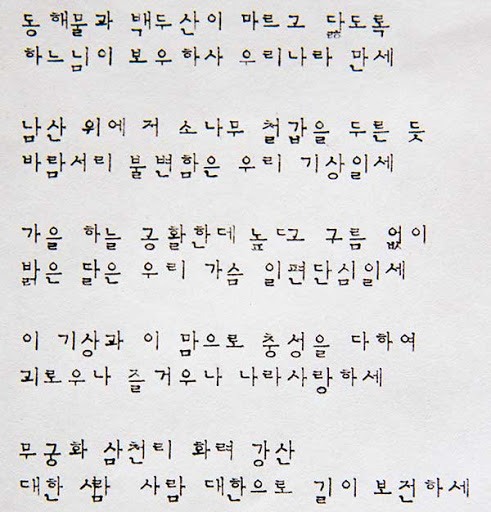 동해물과 백두산이 마르고 닳도록
하느님이 보우하사 우리나라 만세
남산 위에 저 소나무 철갑을 두른 듯
바람서리 불변함은 우리 기상일세
가을 하늘 공활한데 높고 구름 없이
밝은 달은 우리 가슴 일편단심일세
이 기상과 이 맘으로 충성을 다하여
괴로우나 즐거우나 나라사랑하세
무궁화 삼천리 화려 강산
대한 사람 대한으로 길이 보전하세